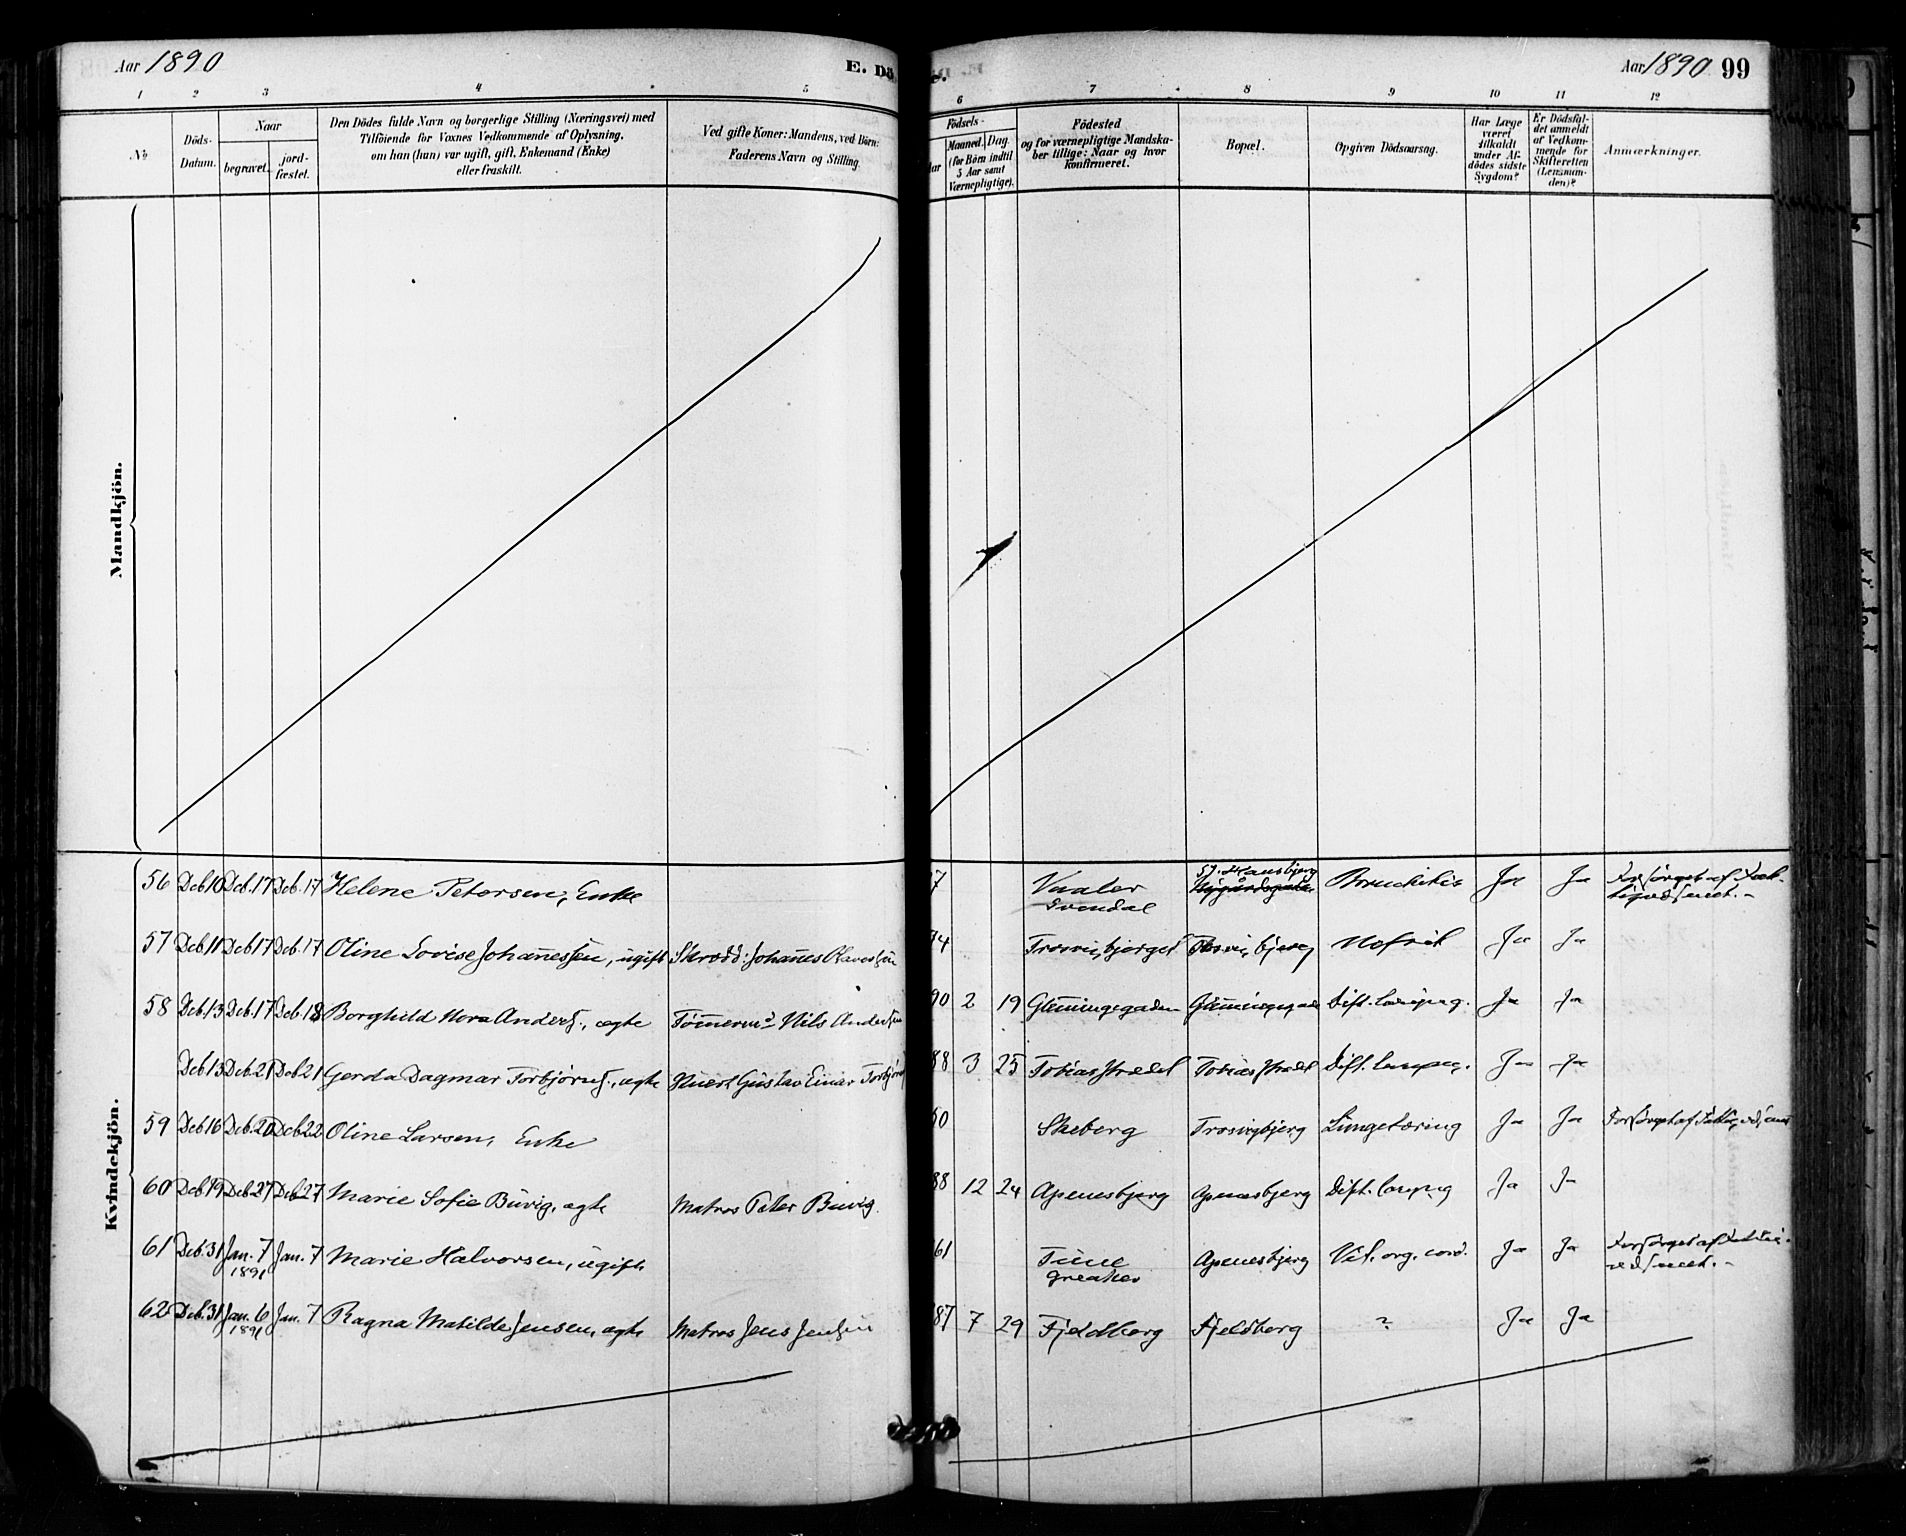 Aar 1890
E. Dö
Aar 1890 99
1 2 3 4 5 6 7 8 9 10 11 12
No
Döds-
Datum.
Naar
begravet.
jord-
fæstet.
Den Dödes fulde Navn og borgerlige Stilling (Næringsvei) med
Tilföiende for Voxnes Vedkommende af Oplysning,
om han (hun) var ugift, gift, Enkemand (Enke)
eller fraskilt.
Ved gifte Koner: Mandens, ved Börn:
Faderens Navn og Stilling.
Födsels-
Aar
Maaned. Dag.
(for Börn indtil
5 Aar samt
Værnepligtige).
Födested
og for værnepligtige Mandska-
ber tillige: Naar og hvor
konfirmeret.
Bopæl.
Opgiven Dödsaarsag.
Har Læge
været
tilkaldt
under Af-
dödes sidste
Sygdom?
Er Dödsfal-
det anmeldt
af Vedkom-
mende for
Skifteretten
(Lensman-
den)?
Anmærkninger.
Mandkjön.
Kvindekjön.
56 Dcb 10 Dcb. 17 Dcb. 17 Helene Petersen, Enke 7 Vaaler Svendal St. Hansbjerg Bronchitis Ja Ja Forsørget af Fat-
tigvæsenet.
57 Dcb 11 Dcb 17 Dcb. 17 Oline Lovise Johannessen, ugift Skrædd: Johannes Olavessen 74 Trosvigbjerget Trosvigbjerg Nefrit Ja Ja
58 Dcb 13 Dcb. 17 Dcb. 18 Borghild Nora Anders., ægte Tømmermd Nils Andersen 90 2 19 Glemmingegaden Glemmingegad Dift. laryng. Ja Ja
Dcb 13 Dcb 21 Dcb 21 Gerda Dagmar Torbjørns., ægte Gustav Einar Torbjørns 88 3 25 Tobiasstrædet Tobiasstrædet Dift. laryng. Ja Ja
59 Dcb 16 Dcb. 20 Dcb 22 Oline Larsen, Enke 0 Skeberg Trosvigbjerg Lungetæring Ja Ja Forsørget af Fattigvæsenet
60 Dcb 19 Dcb 27 Dcb 27 Marie Sofie Buvig, ægte Matros Peter Buvig. 88 12 24 Apenesbjerg Apenesbjerg Dift. laryng Ja Ja
61 Dcb. 31 Jan. 7 1891 Jan. 7 Marie Halvorsen, ugift 61 Tune Greaker Apenesbjerg Vit. org. cord. Ja Ja Forsørget af Fattig-
væsenet.
62 Dcb. 31 Jan. 6 1891 Jan. 7 Ragna Matilde Jensen, ægte Matros Jens Jensen 87 7 29 Fjeldberg Fjeldberg ? Ja Ja